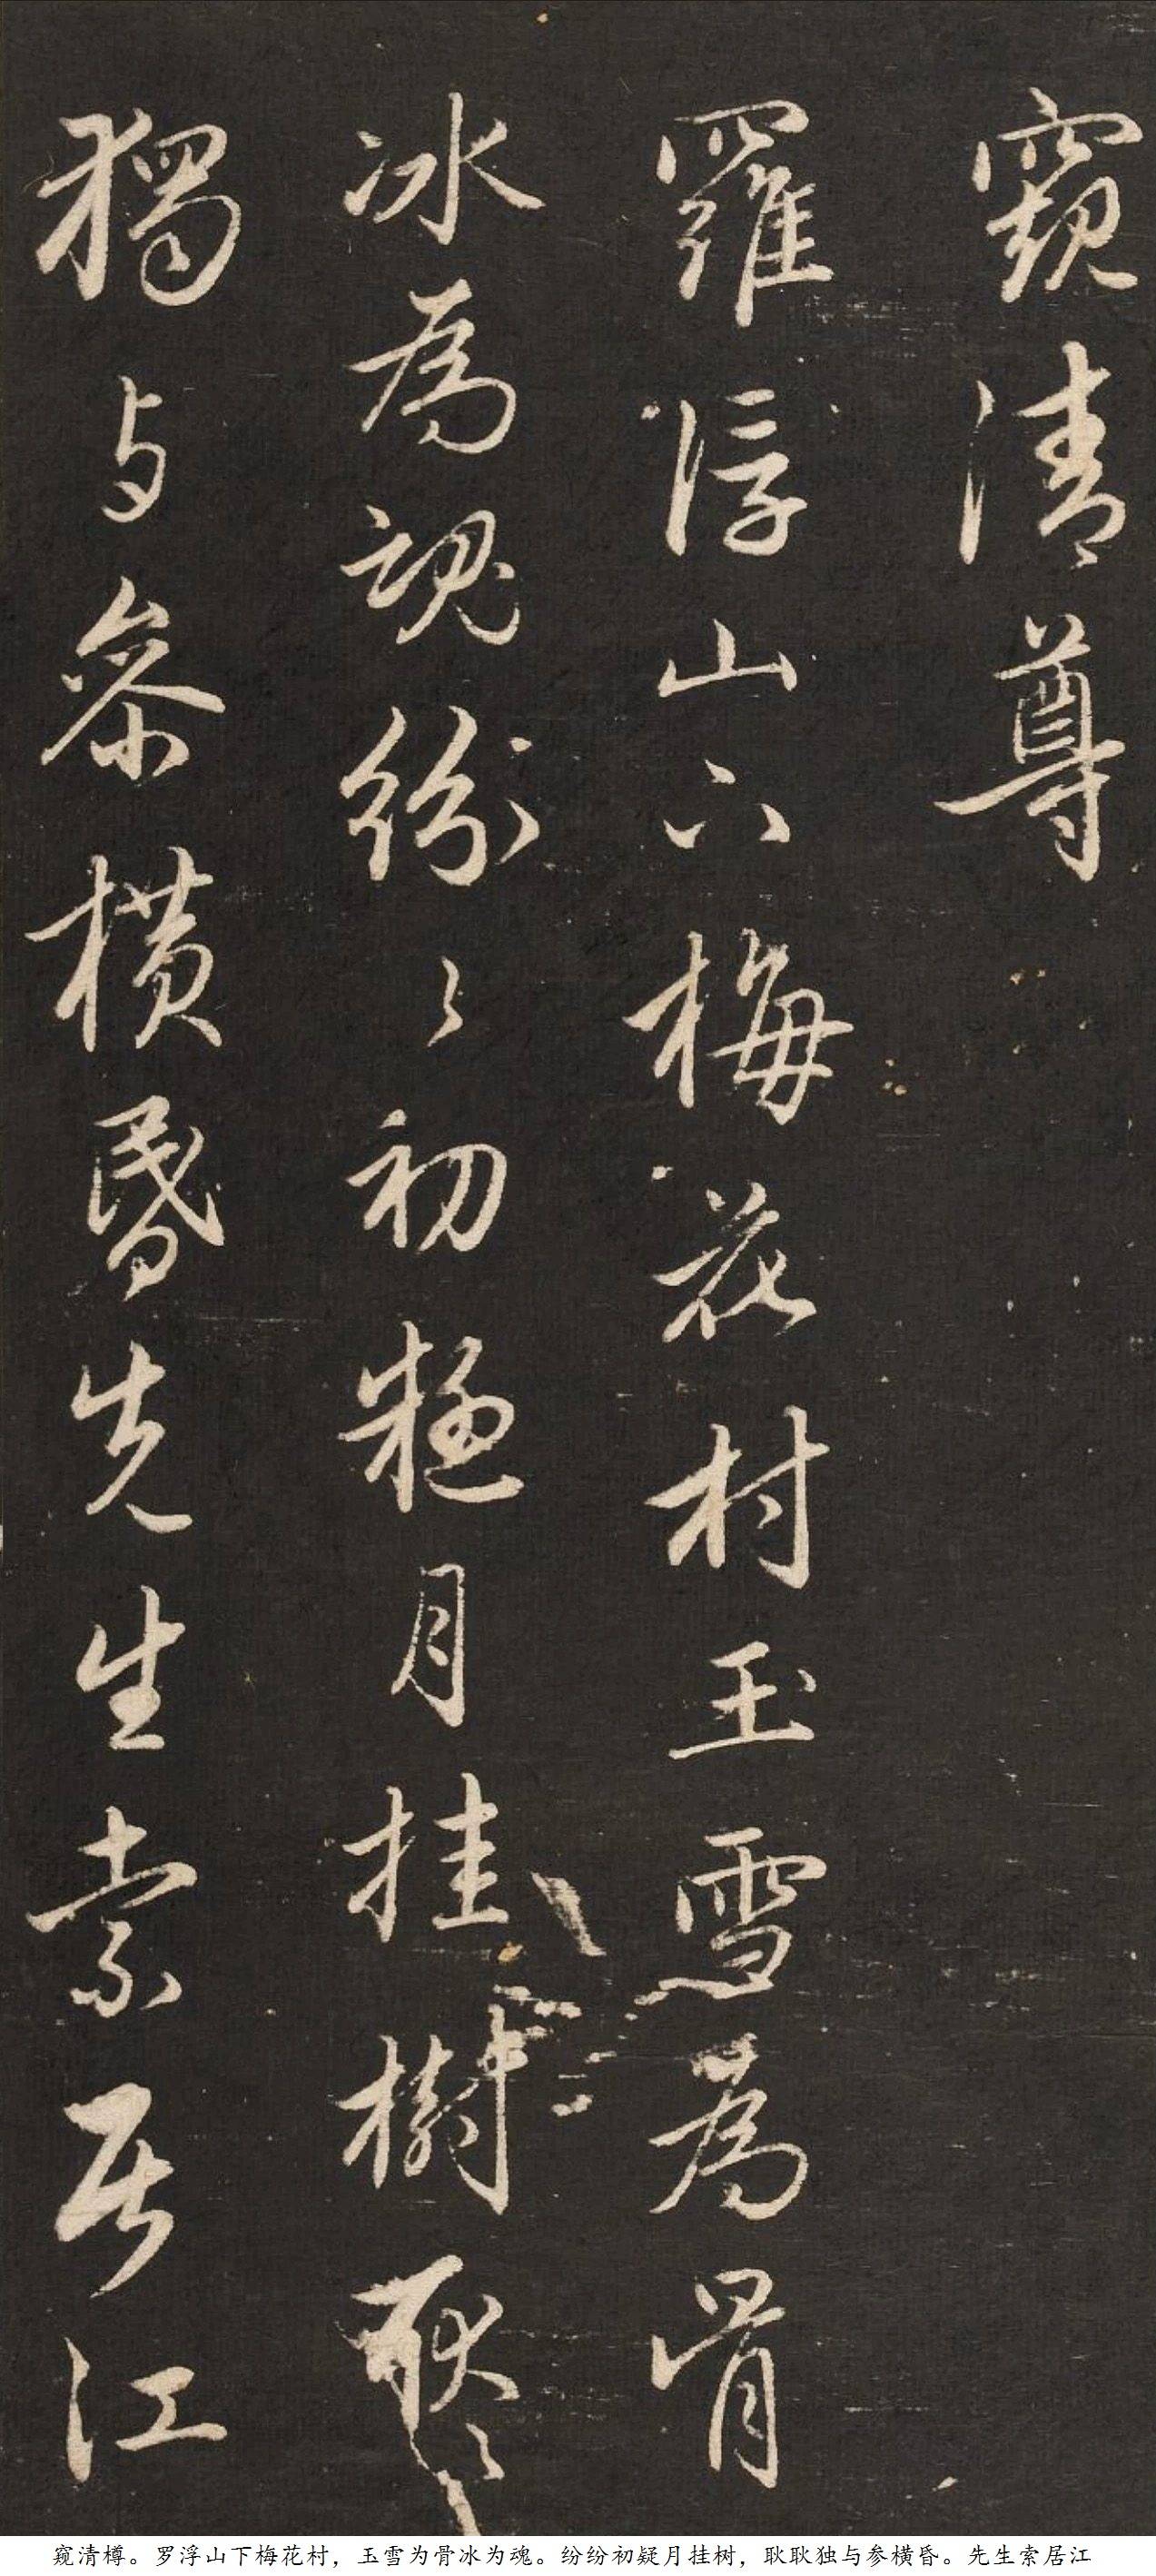 窥清尊
羅浮山下梅花村玉雪為骨
冰為魂紛々初疑月挂樹耿々
獨与參橫昏先生索居江
窥清樽。罗浮山下梅花村，玉雪为骨冰为魂。纷纷初疑月挂树，耿耿独与参横昏。先生索居江